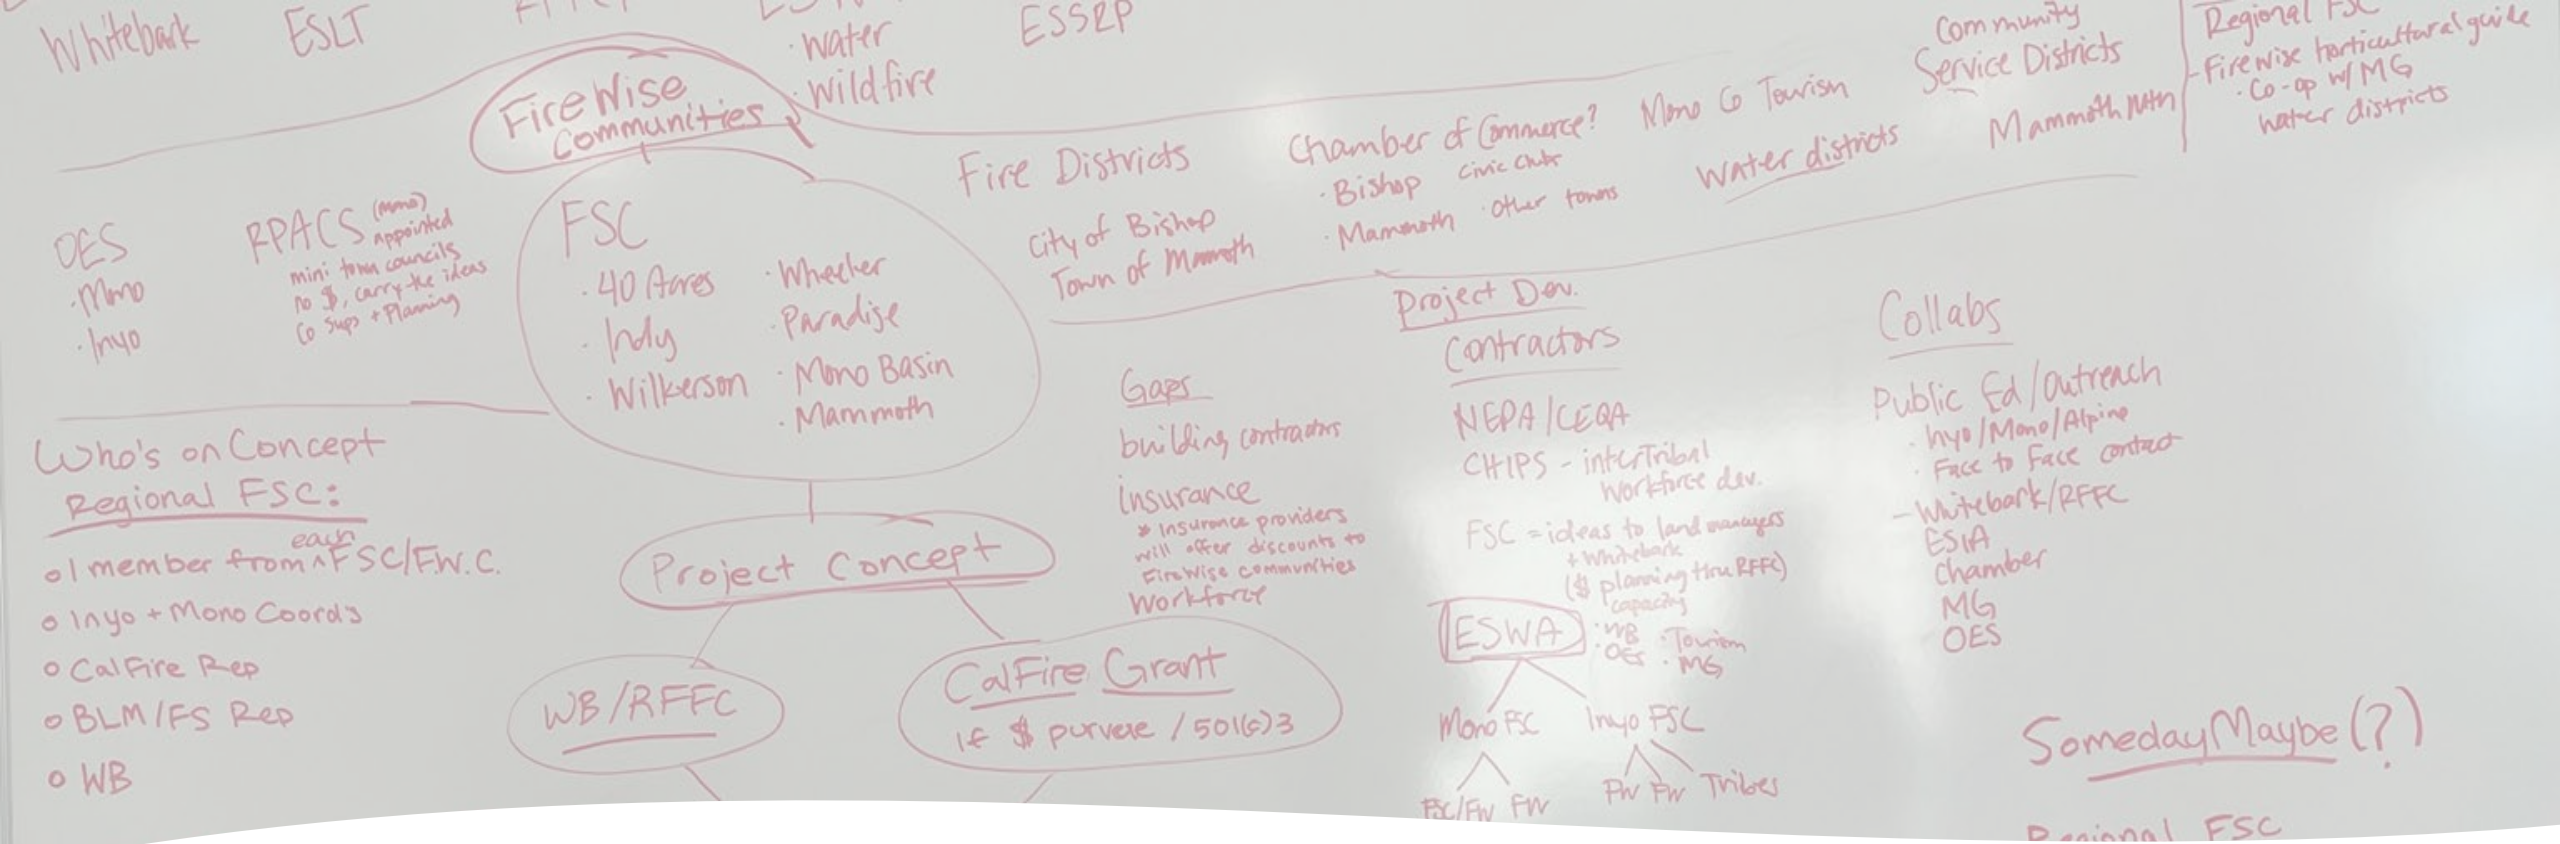 Whitebark
ESLT
· water
· wildfire
ESSRP
FireWise
Communities
OES
· Mono
· Inyo
RPACS (mono)
appointed
mini town councils
no $, carry the ideas
Co Sups + Planning
FSC
· 40 Acres
· Indy
· Wilkerson
· Wheeler
· Paradise
· Mono Basin
· Mammoth
Fire Districts
City of Bishop
Town of Mammoth
Chamber of Commerce?
· Bishop
· Mammoth
Civic Clubs
· Other towns
Mono Co Tourism
Water districts
Community
Service Districts
Mammoth Mtn
Regional FSC
- Firewise horticultural guide
· Co-op w/MG
water districts
Who's on Concept
Regional FSC:
o 1 member from ^each FSC/F.W.C.
o Inyo + Mono Coords
o CalFire Rep
o BLM/FS Rep
o WB
Project Concept
WB/RFFC
CalFire Grant
if $ purvere / 501(c)3
Gaps
building contractors
insurance
* Insurance providers
will offer discounts to
FireWise communities
Workforce
Project Dev.
Contractors
NEPA/CEQA
CHIPS - interTribal
Workforce dev.
FSC = ideas to land managers
+ Whitebark
($ planning thru RFFC)
capacity
ESWA
· WB
· OES
· Tourism
· MG
Mono FSC
Inyo FSC
FSC/FW FW
FW FW Tribes
Collabs
Public Ed/Outreach
· Inyo/Mono/Alpine
· Face to Face contact
- Whitebark/RFFC
ESIA
Chamber
MG
OES
SomedayMaybe(?)
Regional FSC